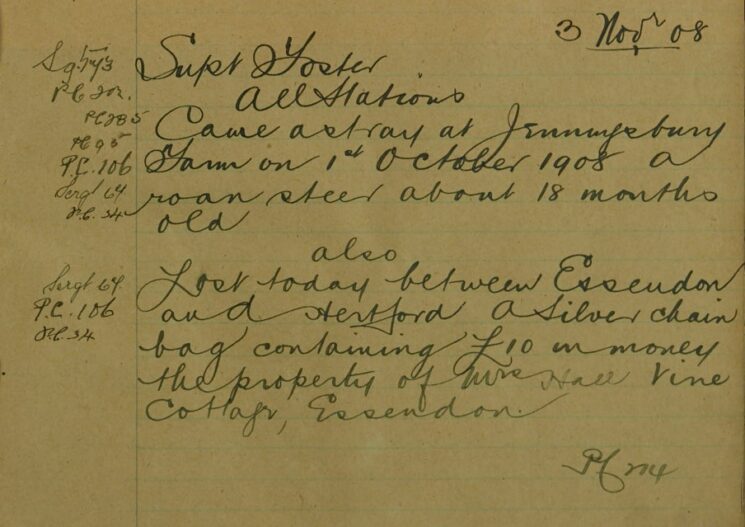 3 Novr 08
Sgt 573 Supt Foster
PC 202. All Stations
PC 285 Came astray at Jenningsbury
PC 95
P.C. 106 Farm on 1st October 1908 a
Sergt 64 roan steer about 18 months
P.C. 34 old
also
Sergt 64. Lost today between Essendon
P.C. 106 and Hertford a silver chain
P.C. 34 bag containing £10 in money
the property of Mrs Hall Vine
Cottage, Essendon.
PC